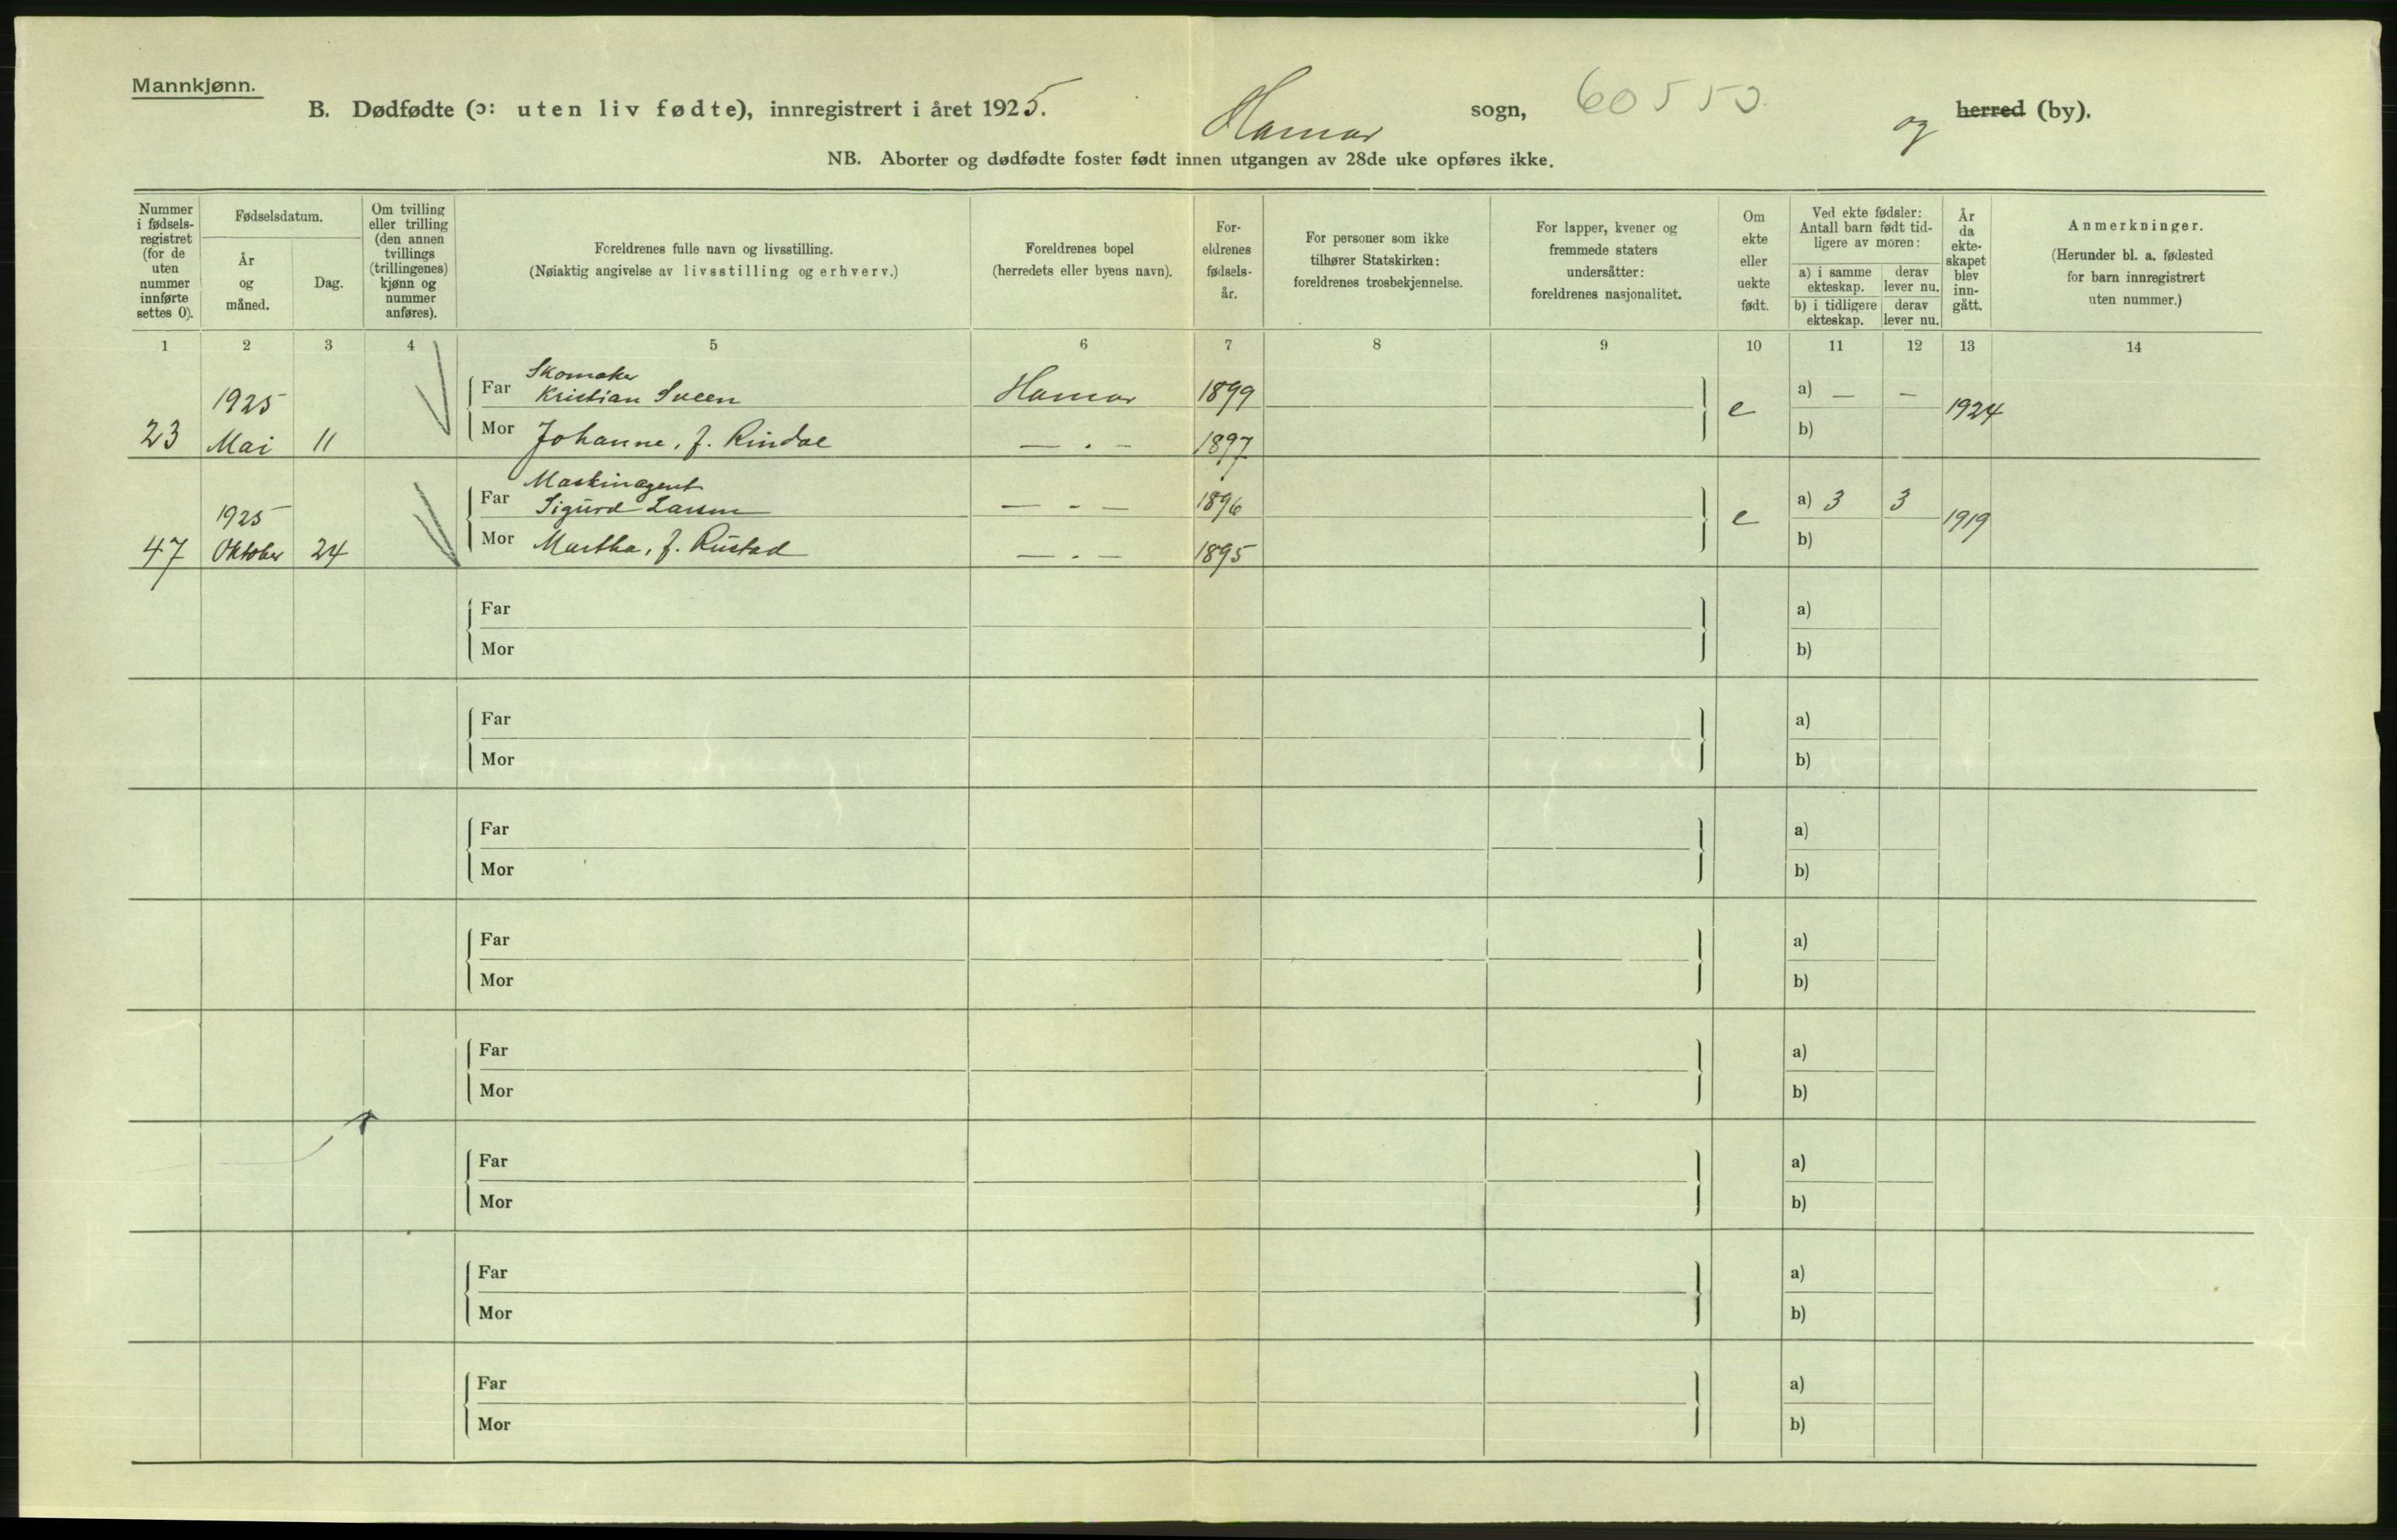 Mannkjønn.
B. Dødfødte (ɔ: uten liv fødte), innregistrert i året 1925.
Hamar sogn, 60550. og herred (by).
NB. Aborter og dødfødte foster født innen utgangen av 28de uke opføres ikke.
Nummer i fødsels-registret (for de uten nummer innførte settes 0).
Fødselsdatum.
År og måned.
Dag.
Om tvilling eller trilling (den annen tvillings (trillingenes) kjønn og nummer anføres).
Foreldrenes fulle navn og livsstilling.
(Nøiaktig angivelse av livsstilling og erhverv.)
Foreldrenes bopel
(herredets eller byens navn).
For-eldrenes fødsels-år.
For personer som ikke tilhører Statskirken: foreldrenes trosbekjennelse.
For lapper, kvener og fremmede staters undersåtter: foreldrenes nasjonalitet.
Om ekte eller uekte født.
Ved ekte fødsler: Antall barn født tid-ligere av moren:
a) i samme ekteskap.
derav lever nu.
b) i tidligere ekteskap.
derav lever nu.
År da ekte-skapet blev inn-gått.
Anmerkninger.
(Herunder bl. a. fødested for barn innregistrert uten nummer.)
1 2 3 4 5 6 7 8 9 10 11 12 13 14
Skomaker
1925 Far Kristian Sveen Hamar 1899 e a) — — 1924
23 Mai 11 Mor Johanne, f. Rindal — . — 1897 b)
Maskinagent
1925 Far Sigurd Larsen — - — 1896 e a) 3 3 1919
47 Oktober 24 Mor Martha, f. Rustad — . — 1895 b)
Far a)
Mor b)
Far a)
Mor b)
Far a)
Mor b)
Far a)
Mor b)
Far a)
Mor b)
Far a)
Mor b)
Far a)
Mor b)
Far a)
Mor b)